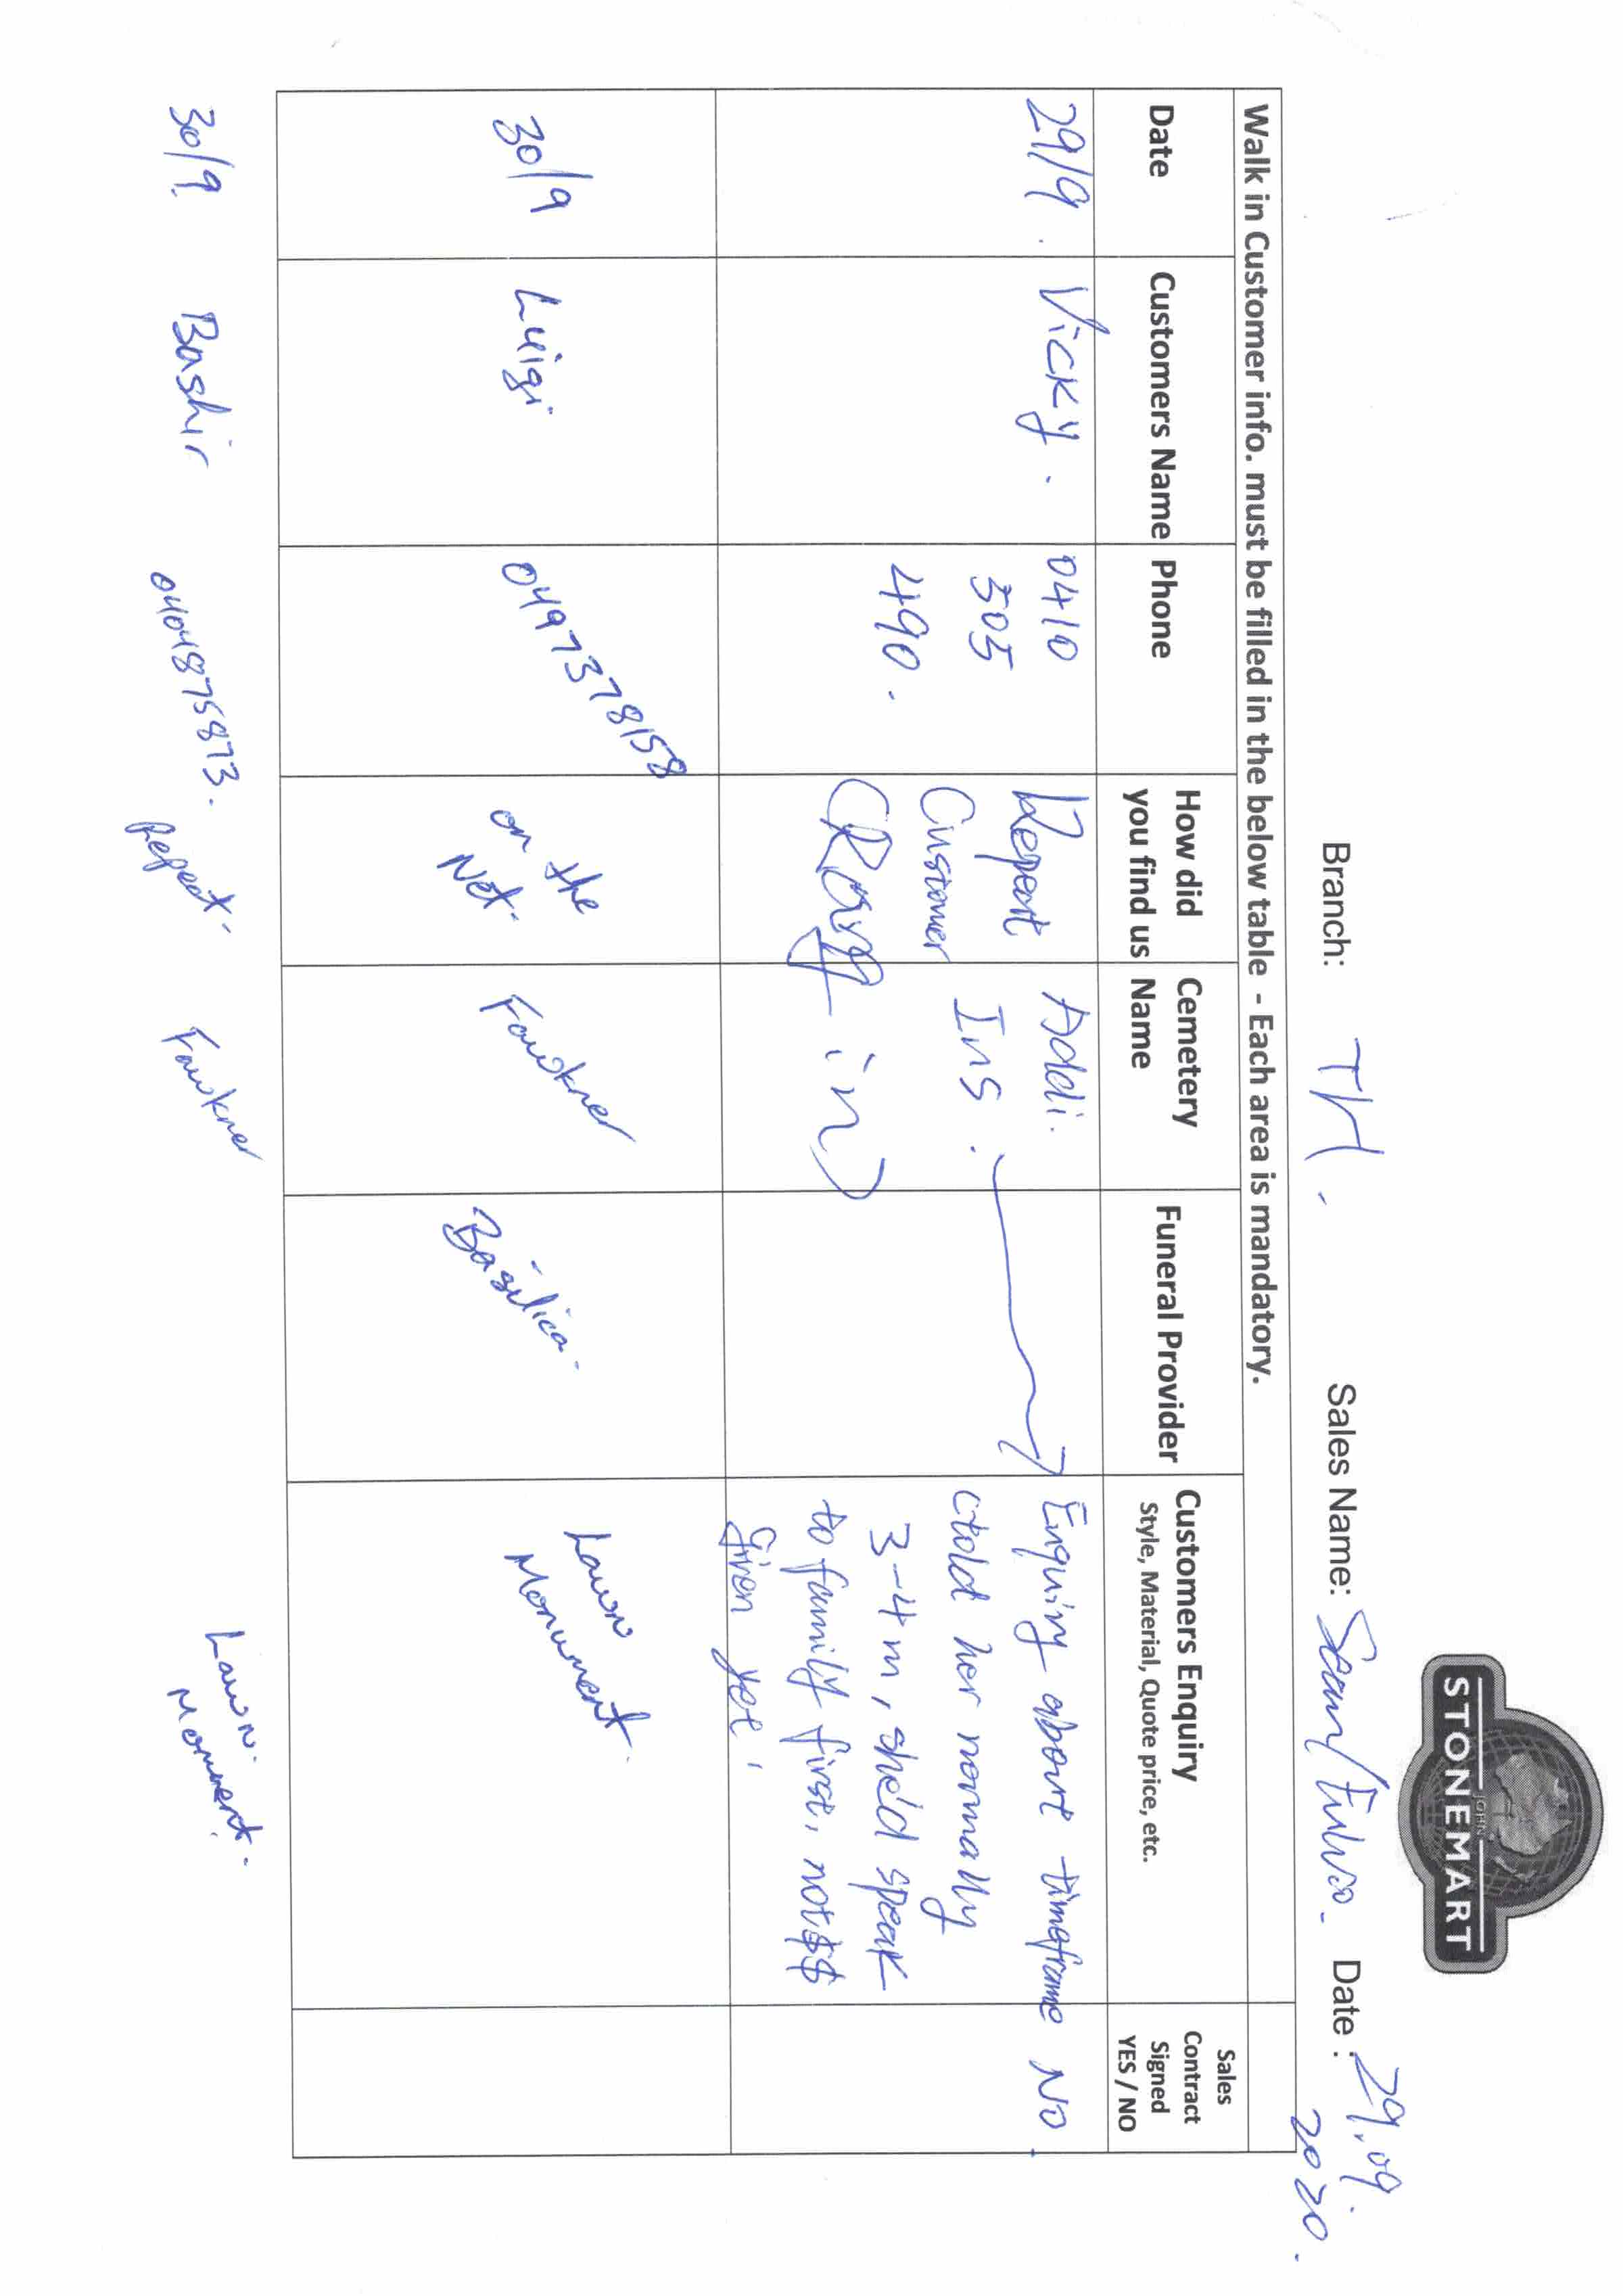 JOHN
STONEMART
Branch: TH. Sales Name: Sean/Fulvio. Date: 29.09.
2020.
Walk in Customer info. must be filled in the below table - Each area is mandatory.
Date
Customers Name
Phone
How did
you find us
Cemetery
Name
Funeral Provider
Customers Enquiry
Style, Material, Quote price, etc.
Sales
Contract
Signed
YES / NO
29/9.
Vicky.
0410
505
490.
Repeat
Customer
Addi.
Ins.
in)
Enquiry about timeframe
(told her normally
3-4m, she'd speak
to family first, not $$
given yet.
NO.
30/9
Luigi
0497378158
on the
Net.
Fawkner
Basilica.
Lawn
Monument.
30/9.
Bashir
0404875873.
Repeat.
Fawkner
Lawn.
Monument.